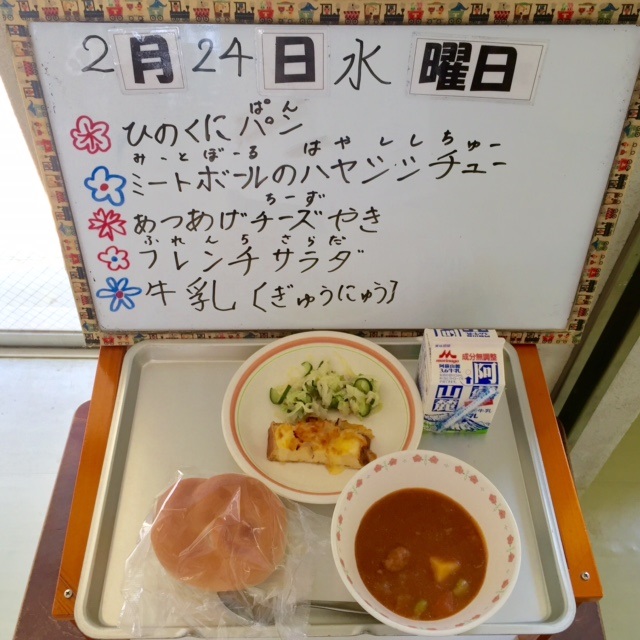 2月24日水曜日
ぱん
ひのくにパン
みーとぼーる はやししちゅー
ミートボールのハヤシシチュー
ちーず
あつあげチーズやき
ふれんちさらだ
フレンチサラダ
牛乳〔ぎゅうにゅう〕
成分無調整